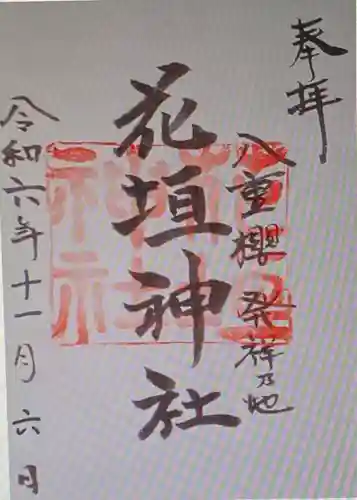 奉拝
八重櫻発祥乃地
花垣神社
令和六年十一月六日